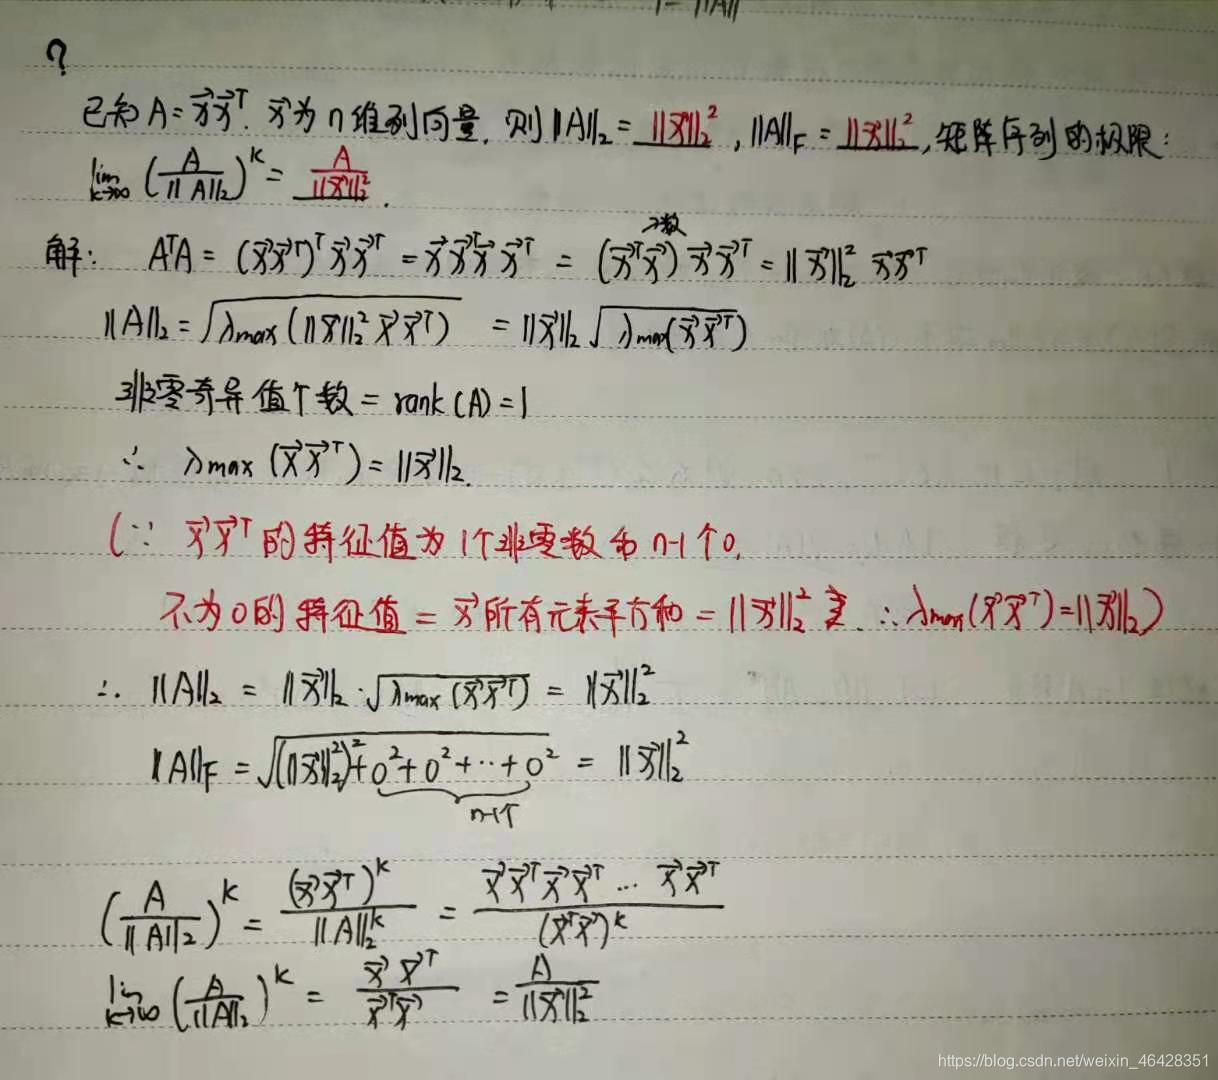 ?
已知 A = x⃗x⃗ᵀ. x⃗为n维列向量, 则 ||A||₂ = ||x⃗||₂², ||A||F = ||x⃗||₂², 矩阵序列的极限:
lim k→∞ (A/||A||₂)ᵏ = A/||x⃗||₂².
数
解: AᵀA = (x⃗x⃗ᵀ)ᵀ x⃗x⃗ᵀ = x⃗x⃗ᵀx⃗x⃗ᵀ = (x⃗ᵀx⃗) x⃗x⃗ᵀ = ||x⃗||₂² x⃗x⃗ᵀ
||A||₂ = √(λmax(||x⃗||₂² x⃗x⃗ᵀ)) = ||x⃗||₂ √(λmax(x⃗x⃗ᵀ))
非零奇异值个数 = rank(A) = 1
∴ λmax(x⃗x⃗ᵀ) = ||x⃗||₂.
(∵ x⃗x⃗ᵀ的特征值为1个非零数和n-1个0,
不为0的特征值 = x⃗所有元素平方和 = ||x⃗||₂² ∴ λmax(x⃗x⃗ᵀ) = ||x⃗||₂)
∴ ||A||₂ = ||x⃗||₂ · √(λmax(x⃗x⃗ᵀ)) = ||x⃗||₂²
||A||F = √((||x⃗||₂²)² + 0² + 0² + ··· + 0²) = ||x⃗||₂²
n-1个
(A/||A||₂)ᵏ = (x⃗x⃗ᵀ)ᵏ/||A||₂ᵏ = x⃗x⃗ᵀx⃗x⃗ᵀ ... x⃗x⃗ᵀ/(x⃗ᵀx⃗)ᵏ
lim k→∞ (A/||A||₂)ᵏ = x⃗x⃗ᵀ/x⃗ᵀx⃗ = A/||x⃗||₂²
https://blog.csdn.net/weixin_46428351